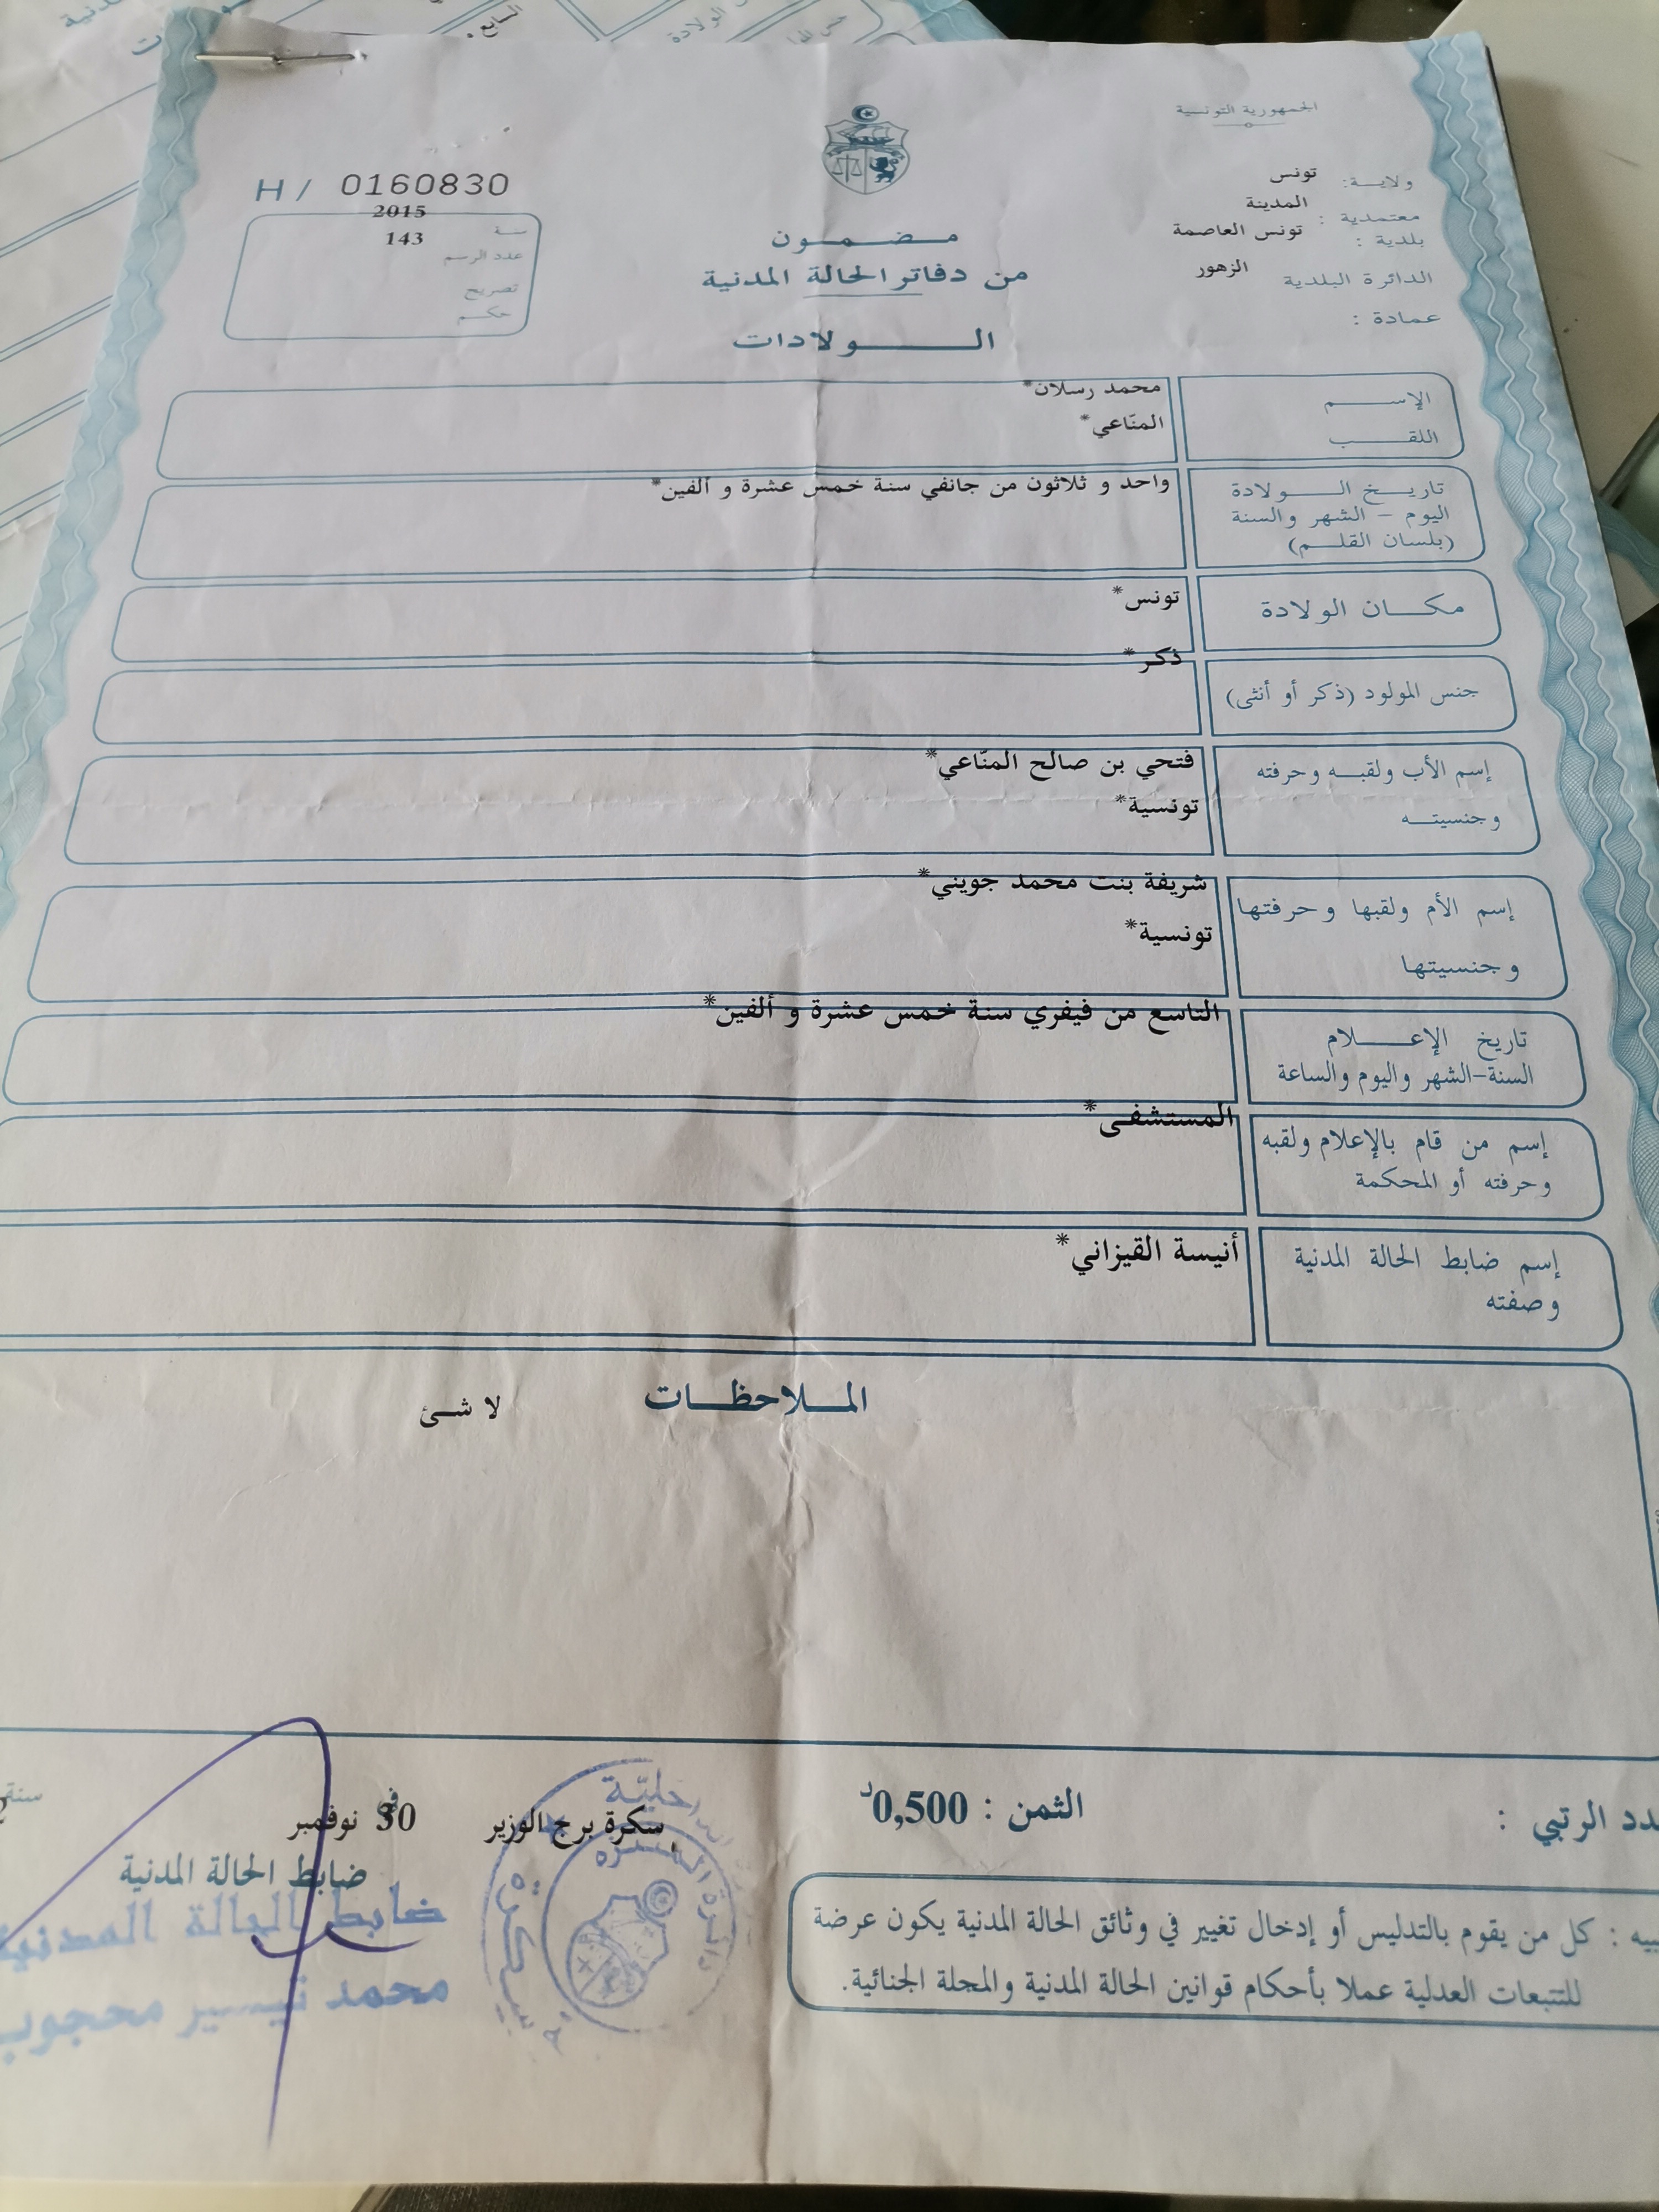 الجمهورية التونسية
ولاية: تونس
معتمدية : المدينة
بلدية : تونس العاصمة
الدائرة البلدية الزهور
عمادة :
مضمون
من دفاتر الحالة المدنية
الولادات
H / 0160830
سنة 2015
عدد الرسم 143
تصريح
حكم
الإسم محمد رسلان*
اللقب المنّاعي*
تاريخ الولادة واحد و ثلاثون من جانفي سنة خمس عشرة و ألفين*
اليوم - الشهر والسنة
(بلسان القلم)
مكان الولادة تونس*
جنس المولود (ذكر أو أنثى) ذكر*
إسم الأب ولقبه وحرفته فتحي بن صالح المنّاعي*
وجنسيته تونسية*
إسم الأم ولقبها وحرفتها شريفة بنت محمد جويني*
وجنسيتها تونسية*
تاريخ الإعلام التاسع من فيفري سنة خمس عشرة و ألفين*
السنة-الشهر واليوم والساعة
إسم من قام بالإعلام ولقبه المستشفى*
وحرفته أو المحكمة
إسم ضابط الحالة المدنية أنيسة القيزاني*
وصفته
الملاحظات لا شئ
الرتبي :
الثمن : 0,500د
سكرة برج الوزير في 30 نوفمبر سنة
ضابط الحالة المدنية
ضابط الحالة المدنية
محمد تيسير محجوب
كل من يقوم بالتدليس أو إدخال تغيير في وثائق الحالة المدنية يكون عرضة
للتتبعات العدلية عملا بأحكام قوانين الحالة المدنية والمجلة الجنائية.